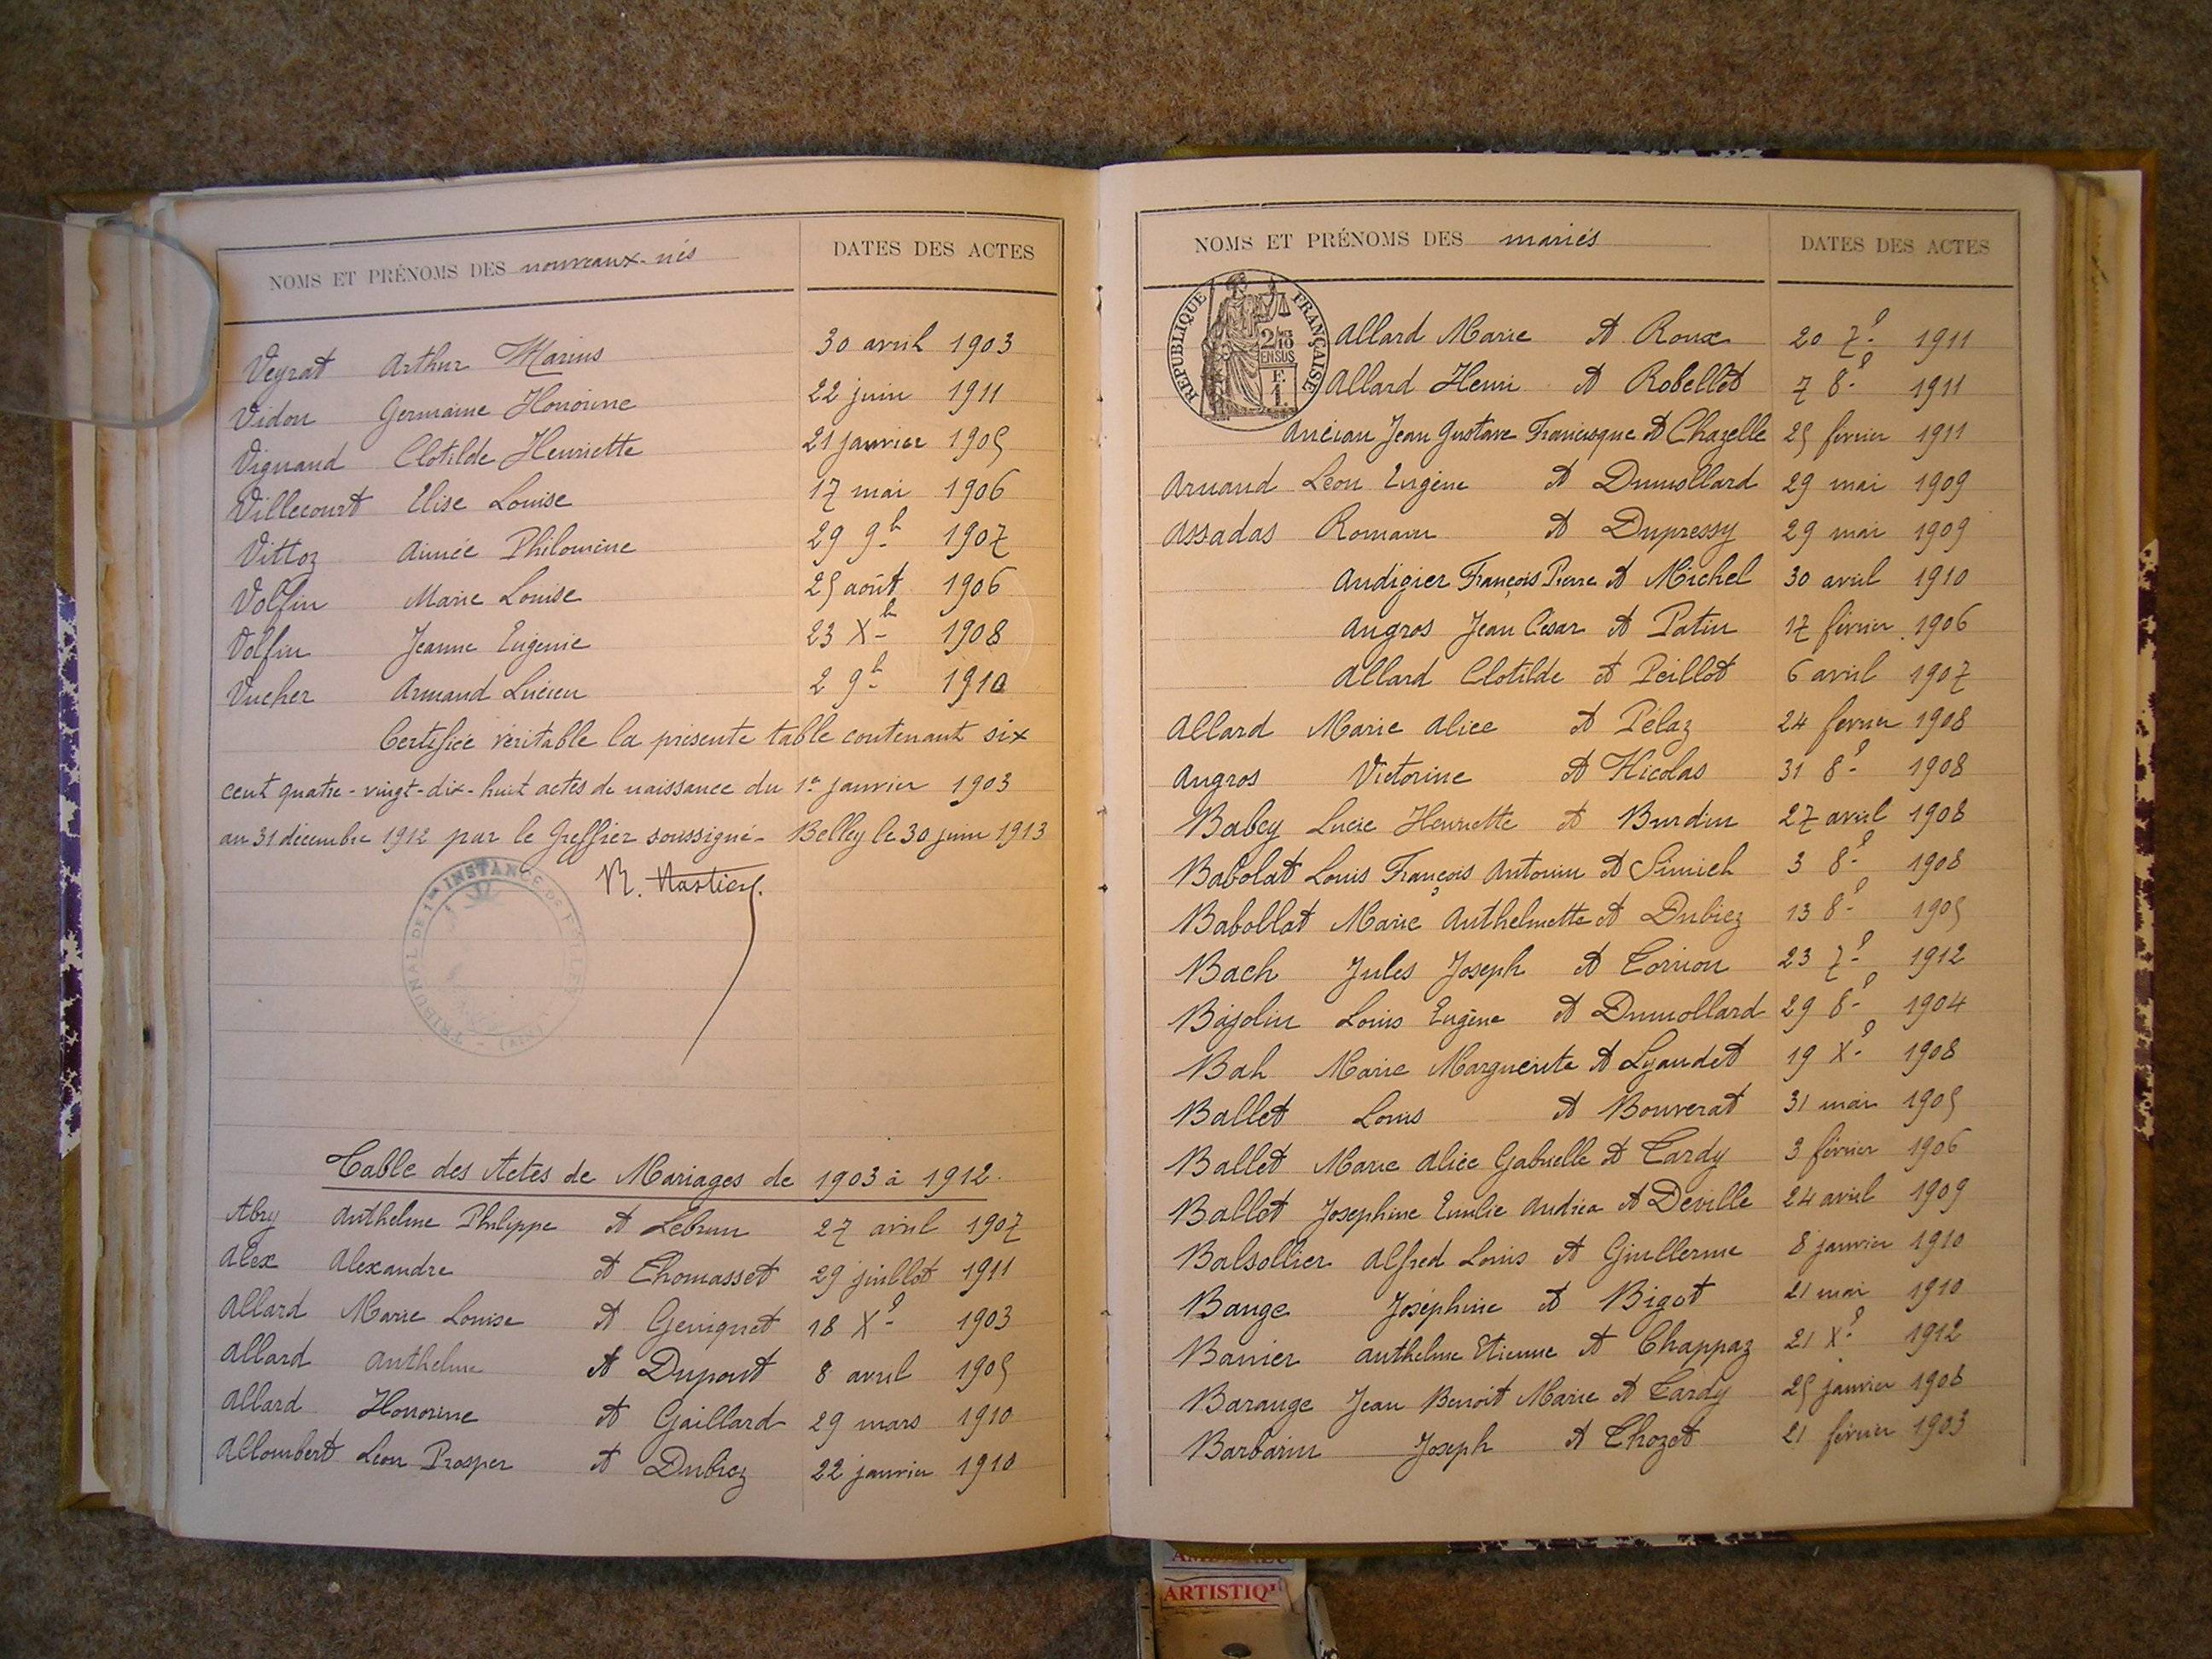 NOMS ET PRÉNOMS DES nouveaux-nés DATES DES ACTES
Veyrat Arthur Marius 30 avril 1903
Vidon Germaine Honorine 22 juin 1911
Vignand Clotilde Henriette 21 janvier 1905
Villecourt Elise Louise 17 mai 1906
Vittoz Aimée Philomène 29 9b 1907
Volfin Marie Louise 25 août 1906
Volfin Jeanne Eugénie 23 Xb 1908
Vucher Armand Lucien 2 9b 1910
Certifiée véritable la présente table contenant six
cent quatre-vingt-dix-huit actes de naissance du 1er janvier 1903
au 31 décembre 1912 par le Greffier soussigné - Belley le 30 juin 1913
TRIBUNAL DE 1re INSTANCE DE
Table des Actes de Mariages de 1903 à 1912.
Abry Anthelme Philippe et Lebrun 27 avril 1907
Alex Alexandre et Thomasset 29 juillet 1911
Allard Marie Louise et Genignet 18 Xe 1903
Allard Anthelme et Dupont 8 avril 1905
Allard Honorine et Gaillard 29 mars 1910
Allombert Léon Prosper et Dubiez 22 janvier 1910
NOMS ET PRÉNOMS DES mariés DATES DES ACTES
RÉPUBLIQUE FRANÇAISE
2/10 EN SUS
F.
1.
Allard Marie et Roux 20 7e 1911
Allard Henri et Robellet 7 8e 1911
Ancian Jean Gustave Francisque et Chazelle 25 février 1911
Arnaud Léon Eugène et Dumollard 29 mai 1909
Assadas Romain et Dupressy 29 mai 1909
Audigier François Pierre et Michel 30 avril 1910
Angros Jean César et Patin 17 février 1906
Allard Clotilde et Peillot 6 avril 1907
Allard Marie Alice et Pélaz 24 février 1908
Angros Victorine et Nicolas 31 8e 1908
Babey Lucie Henriette et Burdin 27 avril 1908
Babolat Louis François Antonin et Simich 3 8e 1908
Babollat Marie Anthelmette et Dubiez 13 8e 1905
Bach Jules Joseph et Cornon 23 7e 1912
Bajolin Louis Eugène et Dumollard 29 8e 1904
Bal Marie Marguerite et Lyaudet 19 Xe 1908
Ballet Louis et Bouverat 31 mai 1905
Ballet Marie Alice Gabrielle et Tardy 3 février 1906
Ballet Joséphine Emilie Andréa et Deville 24 avril 1909
Balsollier Alfred Louis et Guillerme 8 janvier 1910
Bange Joséphine et Bigot 21 mai 1910
Banier Anthelme Etienne et Chappaz 21 Xe 1912
Barange Jean Benoit Marie et Tardy 25 janvier 1908
Barbarin Joseph et Chozet 21 février 1903
ARTISTIQ